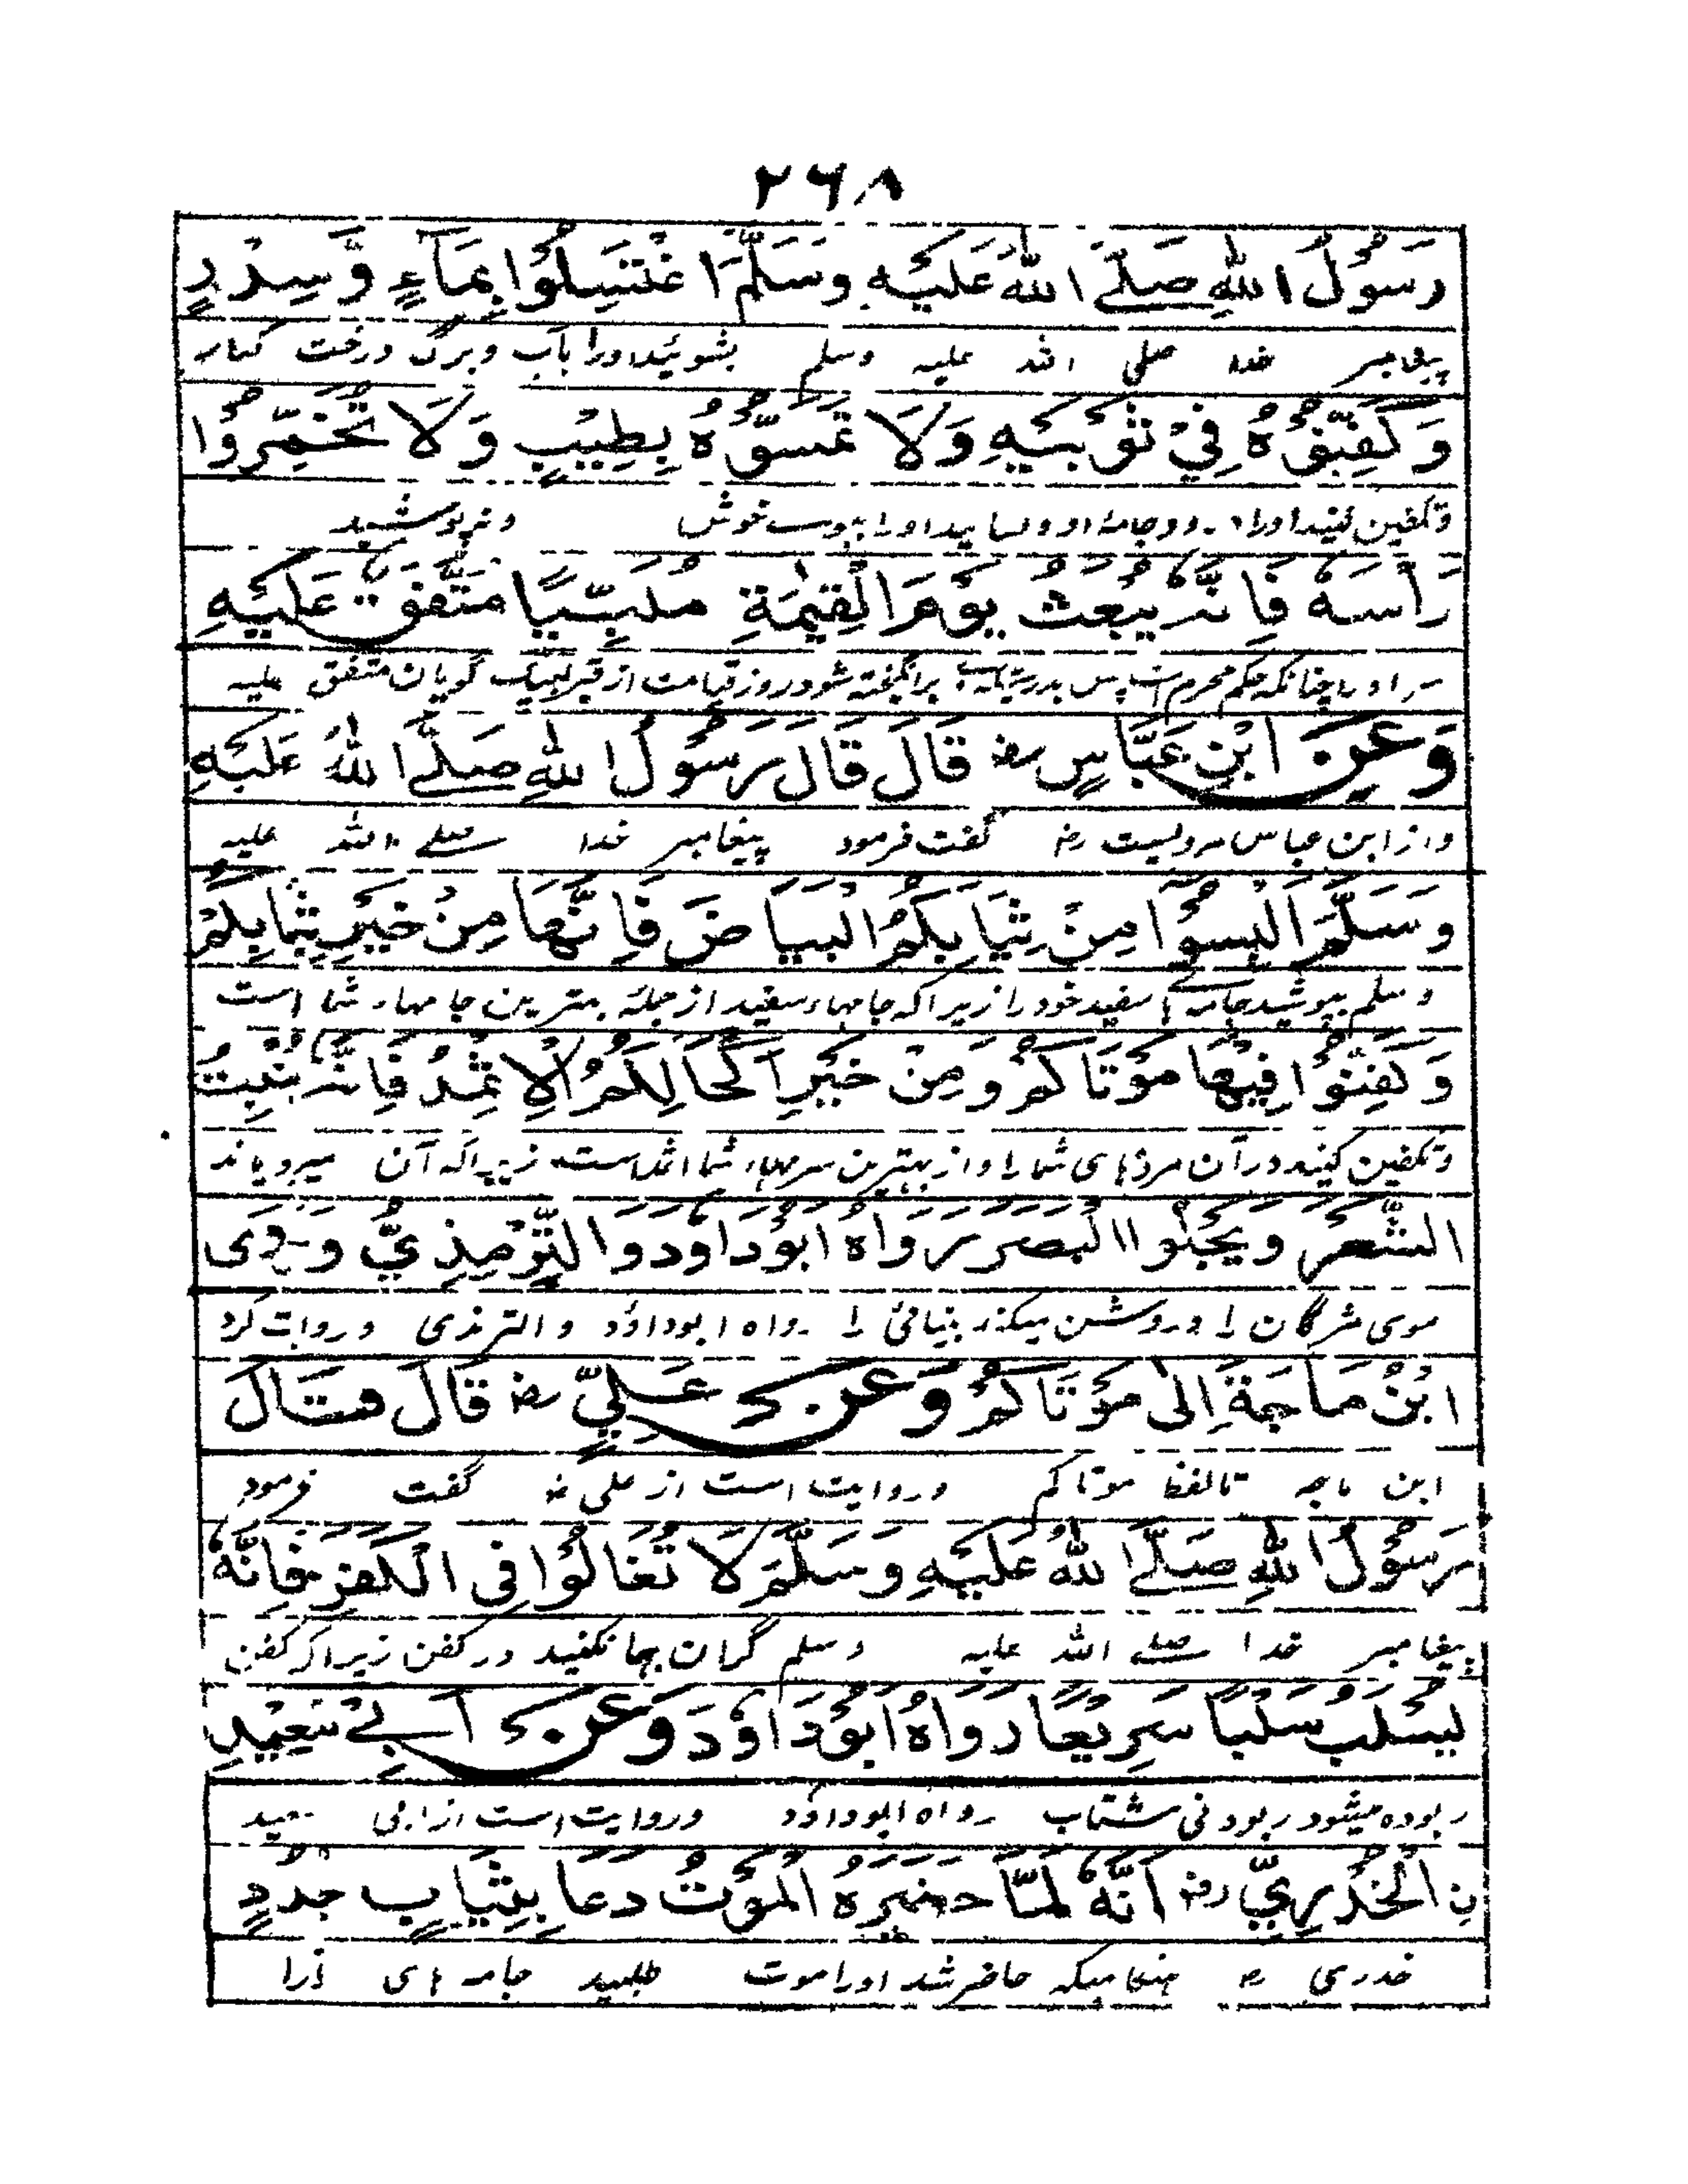 ۲۶۸
رَسُوْلُ اللهِ صَلَّے اللهُ عَلَيْهِ وَسَلَّمَ اغْتَسِلُوْا بِمَآءٍ وَّسِدْرٍ
پیغامبر خدا صلی الله علیه وسلم بشوئید اورا بآب وبرگ درخت کنار
وَكَفِّنُوْهُ فِيْ ثَوْبَيْهِ وَلَا تَمَسُّوْهُ بِطِيْبٍ وَلَا تُخَمِّرُوْا
وتکفین کنید اورا در دو جامهٔ او و اورا خوش ونپوشید
رَأْسَهٗ فَاِنَّهٗ يُبْعَثُ يَوْمَ الْقِيٰمَةِ مُلَبِّيًا مُتَّفَقٌ عَلَيْهِ
سر اورا چنانکه حکم محرم است پس بدرستیکه برانگیخته شود روز قیامت از قبر لبیک گویان متفق علیه
وَعَنِ ابْنِ عَبَّاسٍ رض قَالَ قَالَ رَسُوْلُ اللهِ صَلَّے اللهُ عَلَيْهِ
واز ابن عباس مرویست رض گفت فرمود پیغامبر خدا صلے الله علیه
وَسَلَّمَ الْبِسُوْا مِنْ ثِيَابِكُمُ الْبَيَاضَ فَاِنَّهَا مِنْ خَيْرِ ثِيَابِكُمْ
وسلم بپوشید سفید خود را زیرا که جامهاء سفید از جمله بهترین جامهاء شما است
وَكَفِّنُوْا فِيْهَا مَوْتَاكُمْ وَمِنْ خَيْرِ اَكْحَالِكُمُ الْاِثْمِدُ فَاِنَّهٗ يُنْبِتُ
وتکفین کنید در آن مردهای شما را واز بهترین سرمهاء شما اثمد است زیرا که آن میرویاند
الشَّعْرَ وَيَجْلُوا الْبَصَرَ رَوَاهُ اَبُوْدَاوٗدَ وَالتِّرْمِذِيُّ وَرَوٰى
موی مژگان را وروشن میکند بینائی را رواه ابوداؤد والترمذی وروایت کرد
ابْنُ مَاجَةَ اِلٰى مَوْتَاكُمْ وَعَنْ عَلِيٍّ رض قَالَ قَالَ
ابن ماجه تا لفظ موتاکم وروایت است از علی رض گفت فرمود
رَسُوْلُ اللهِ صَلَّے اللهُ عَلَيْهِ وَسَلَّمَ لَا تُغَالُوْا فِى الْكَفَنِ فَاِنَّهٗ
پیغامبر خدا صلے الله علیه وسلم گران بها نکنید در کفن زیرا که کفن
يُسْلَبُ سَلْبًا سَرِيْعًا رَوَاهُ اَبُوْدَاوٗدَ وَعَنْ اَبِيْ سَعِيْدِ
ربوده میشود ربودنی شتاب رواه ابوداؤد وروایت است از ابی سعید
نِ الْخُدْرِيِّ رض اَنَّهٗ لَمَّا حَضَرَهُ الْمَوْتُ دَعَا بِثِيَابٍ جُدُدٍ
خدری رض هنگامیکه حاضر شد اورا موت طلبید جامه های